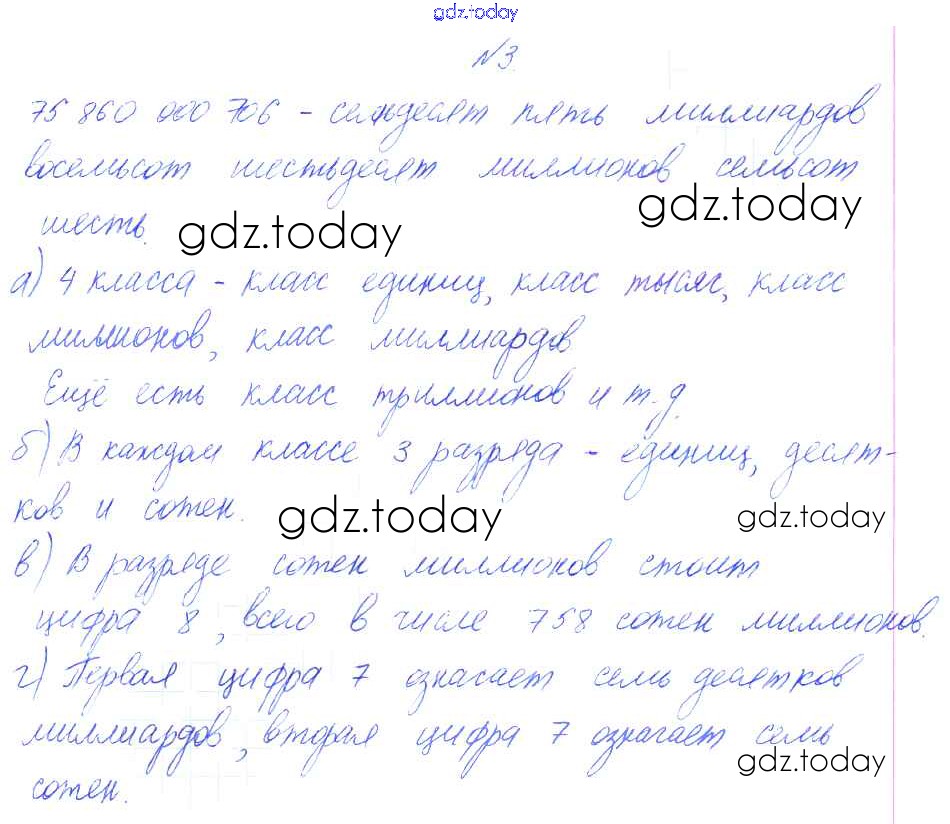 gdz.today
№3.
75 860 000 706 - семьдесят пять миллиардов
восемьсот шестьдесят миллионов семьсот
шесть.
gdz.today
gdz.today
а) 4 класса - класс единиц, класс тысяч, класс
миллионов, класс миллиардов
Ещё есть класс триллионов и т.д.
б) В каждом классе 3 разряда - единиц, десят-
ков и сотен.
gdz.today
gdz.today
в) В разряде сотен миллионов стоит
цифра 8, всего в числе 758 сотен миллионов.
г) Первая цифра 7 означает семь десятков
миллиардов, вторая цифра 7 означает семь
gdz.today
сотен.